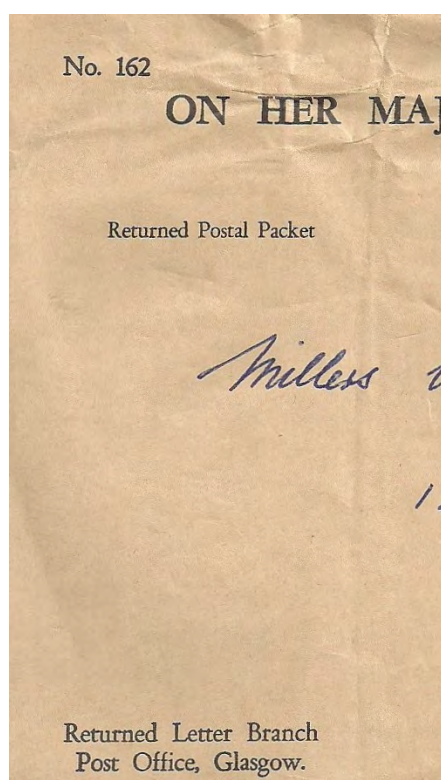 No. 162
ON HER
Returned Postal Packet
Millers
Returned Letter Branch
Post Office, Glasgow.